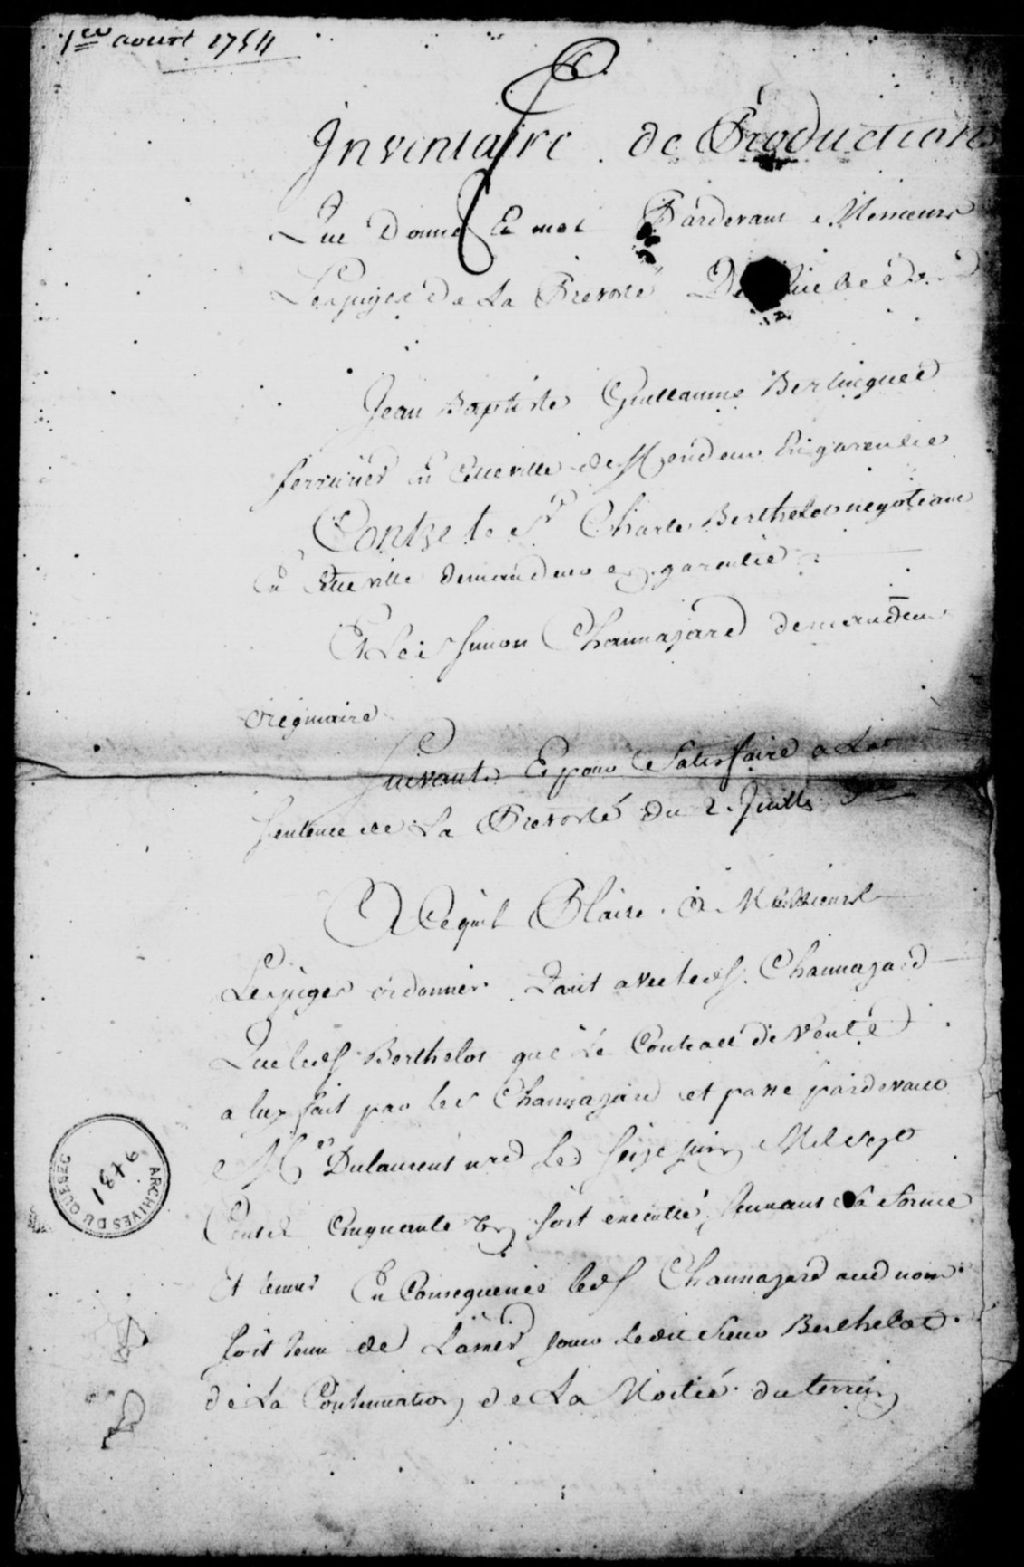 1er aoust 1754
Inventaire de Production
Que Donne Et met Pardevant Messieurs
Les juges De La Prevosté De Quebec
Jean Baptiste Guillaume Berlinguet
serrurier en Cette ville deffendeur En garentie
Contre le Sr Charle Berthelot negotiant
en Cette ville demandeur en garentie
Et Le Sr Simon Chaunazard demandeur
originaire
Suivant Et pour Satisfaire a La
sentence de La Prevosté du 2 Juillet
A Ce quil Plaise à Messieurs
Les juges ordonner tant avec led Sr Chaunazard
Que led Sr Berthelot que Le Contract de Vente
a luy fait par le Sr Chaunazard et passé pardevant
Me Dulaurent nre Le seize juin Mil sept
Cent Cinquante soit executté suivant Sa forme
Et teneur En Consequence led Sr Chaunazard aud nom
soit tenu de Laisser jouir Ledit Sieur Berthelot
de La Continuation de La Moitié du terrein
ARCHIVES DU QUEBEC